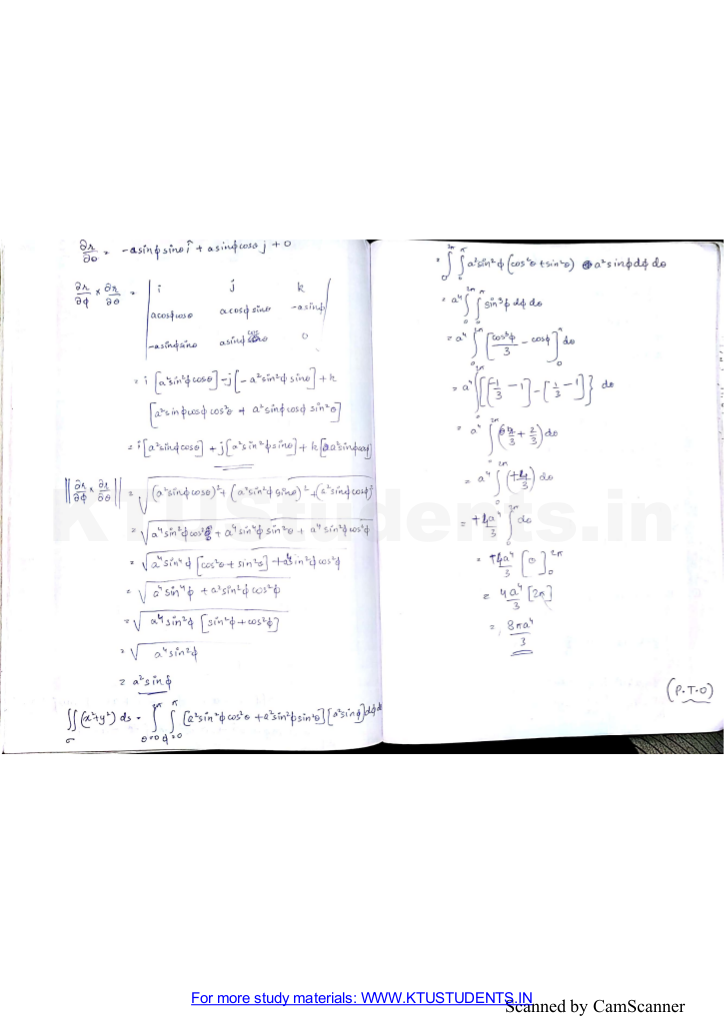 ∂r/∂θ = -a sinϕ sinθ î + a sinϕ cosθ j + 0
∂r/∂ϕ × ∂r/∂θ = | i j k
a cosϕ cosθ a cosϕ sinθ -a sinϕ
-a sinϕ sinθ a sinϕ cosθ 0 |
= i [a² sin²ϕ cosθ] - j [-a² sin²ϕ sinθ] + k
[a² sinϕ cosϕ cos²θ + a² sinϕ cosϕ sin²θ]
= i [a² sin²ϕ cosθ] + j [a² sin²ϕ sinθ] + k [a² sinϕ cosϕ]
‖∂r/∂ϕ × ∂r/∂θ‖ = √((a² sin²ϕ cosθ)² + (a² sin²ϕ sinθ)² + (a² sinϕ cosϕ)²
= √(a⁴ sin⁴ϕ cos²θ + a⁴ sin⁴ϕ sin²θ + a⁴ sin²ϕ cos²ϕ)
= √(a⁴ sin⁴ϕ [cos²θ + sin²θ] + a⁴ sin²ϕ cos²ϕ)
= √(a⁴ sin⁴ϕ + a⁴ sin²ϕ cos²ϕ)
= √(a⁴ sin²ϕ [sin²ϕ + cos²ϕ])
= √(a⁴ sin²ϕ)
= a² sinϕ
∬σ (x²+y²) ds = ∫θ=0^2π ∫ϕ=0^π [a² sin²ϕ cos²θ + a² sin²ϕ sin²θ] [a² sinϕ] dϕ dθ
= ∫0^2π ∫0^π a² sin²ϕ (cos²θ + sin²θ) a² sinϕ dϕ dθ
= a⁴ ∫0^2π ∫0^π sin³ϕ dϕ dθ
= a⁴ ∫0^2π [cos³ϕ/3 - cosϕ]0^π dθ
= a⁴ ∫0^2π {[-1/3 - -1] - [1/3 - 1]} dθ
= a⁴ ∫0^2π (2/3 + 2/3) dθ
= a⁴ ∫0^2π (+4/3) dθ
= +4a⁴/3 ∫0^2π dθ
= +4a⁴/3 [θ]0^2π
= 4a⁴/3 [2π]
= 8πa⁴/3
(P.T.O)
KTUStudents.in
For more study materials: WWW.KTUSTUDENTS.IN
Scanned by CamScanner